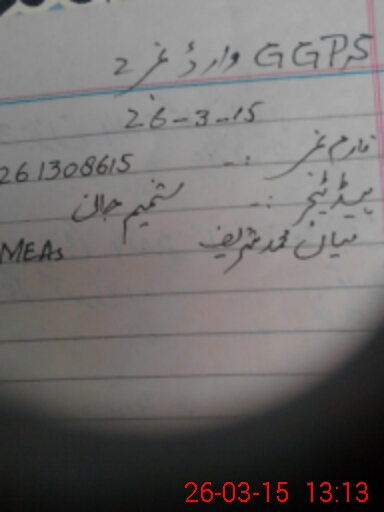 GGPS وارڈ نمبر 2
26-3-15
فارم نمبر :- 261308615
ہیڈ ٹیچر :- شمیم جان
میاں محمد شریف MEAs
26-03-15 13:13